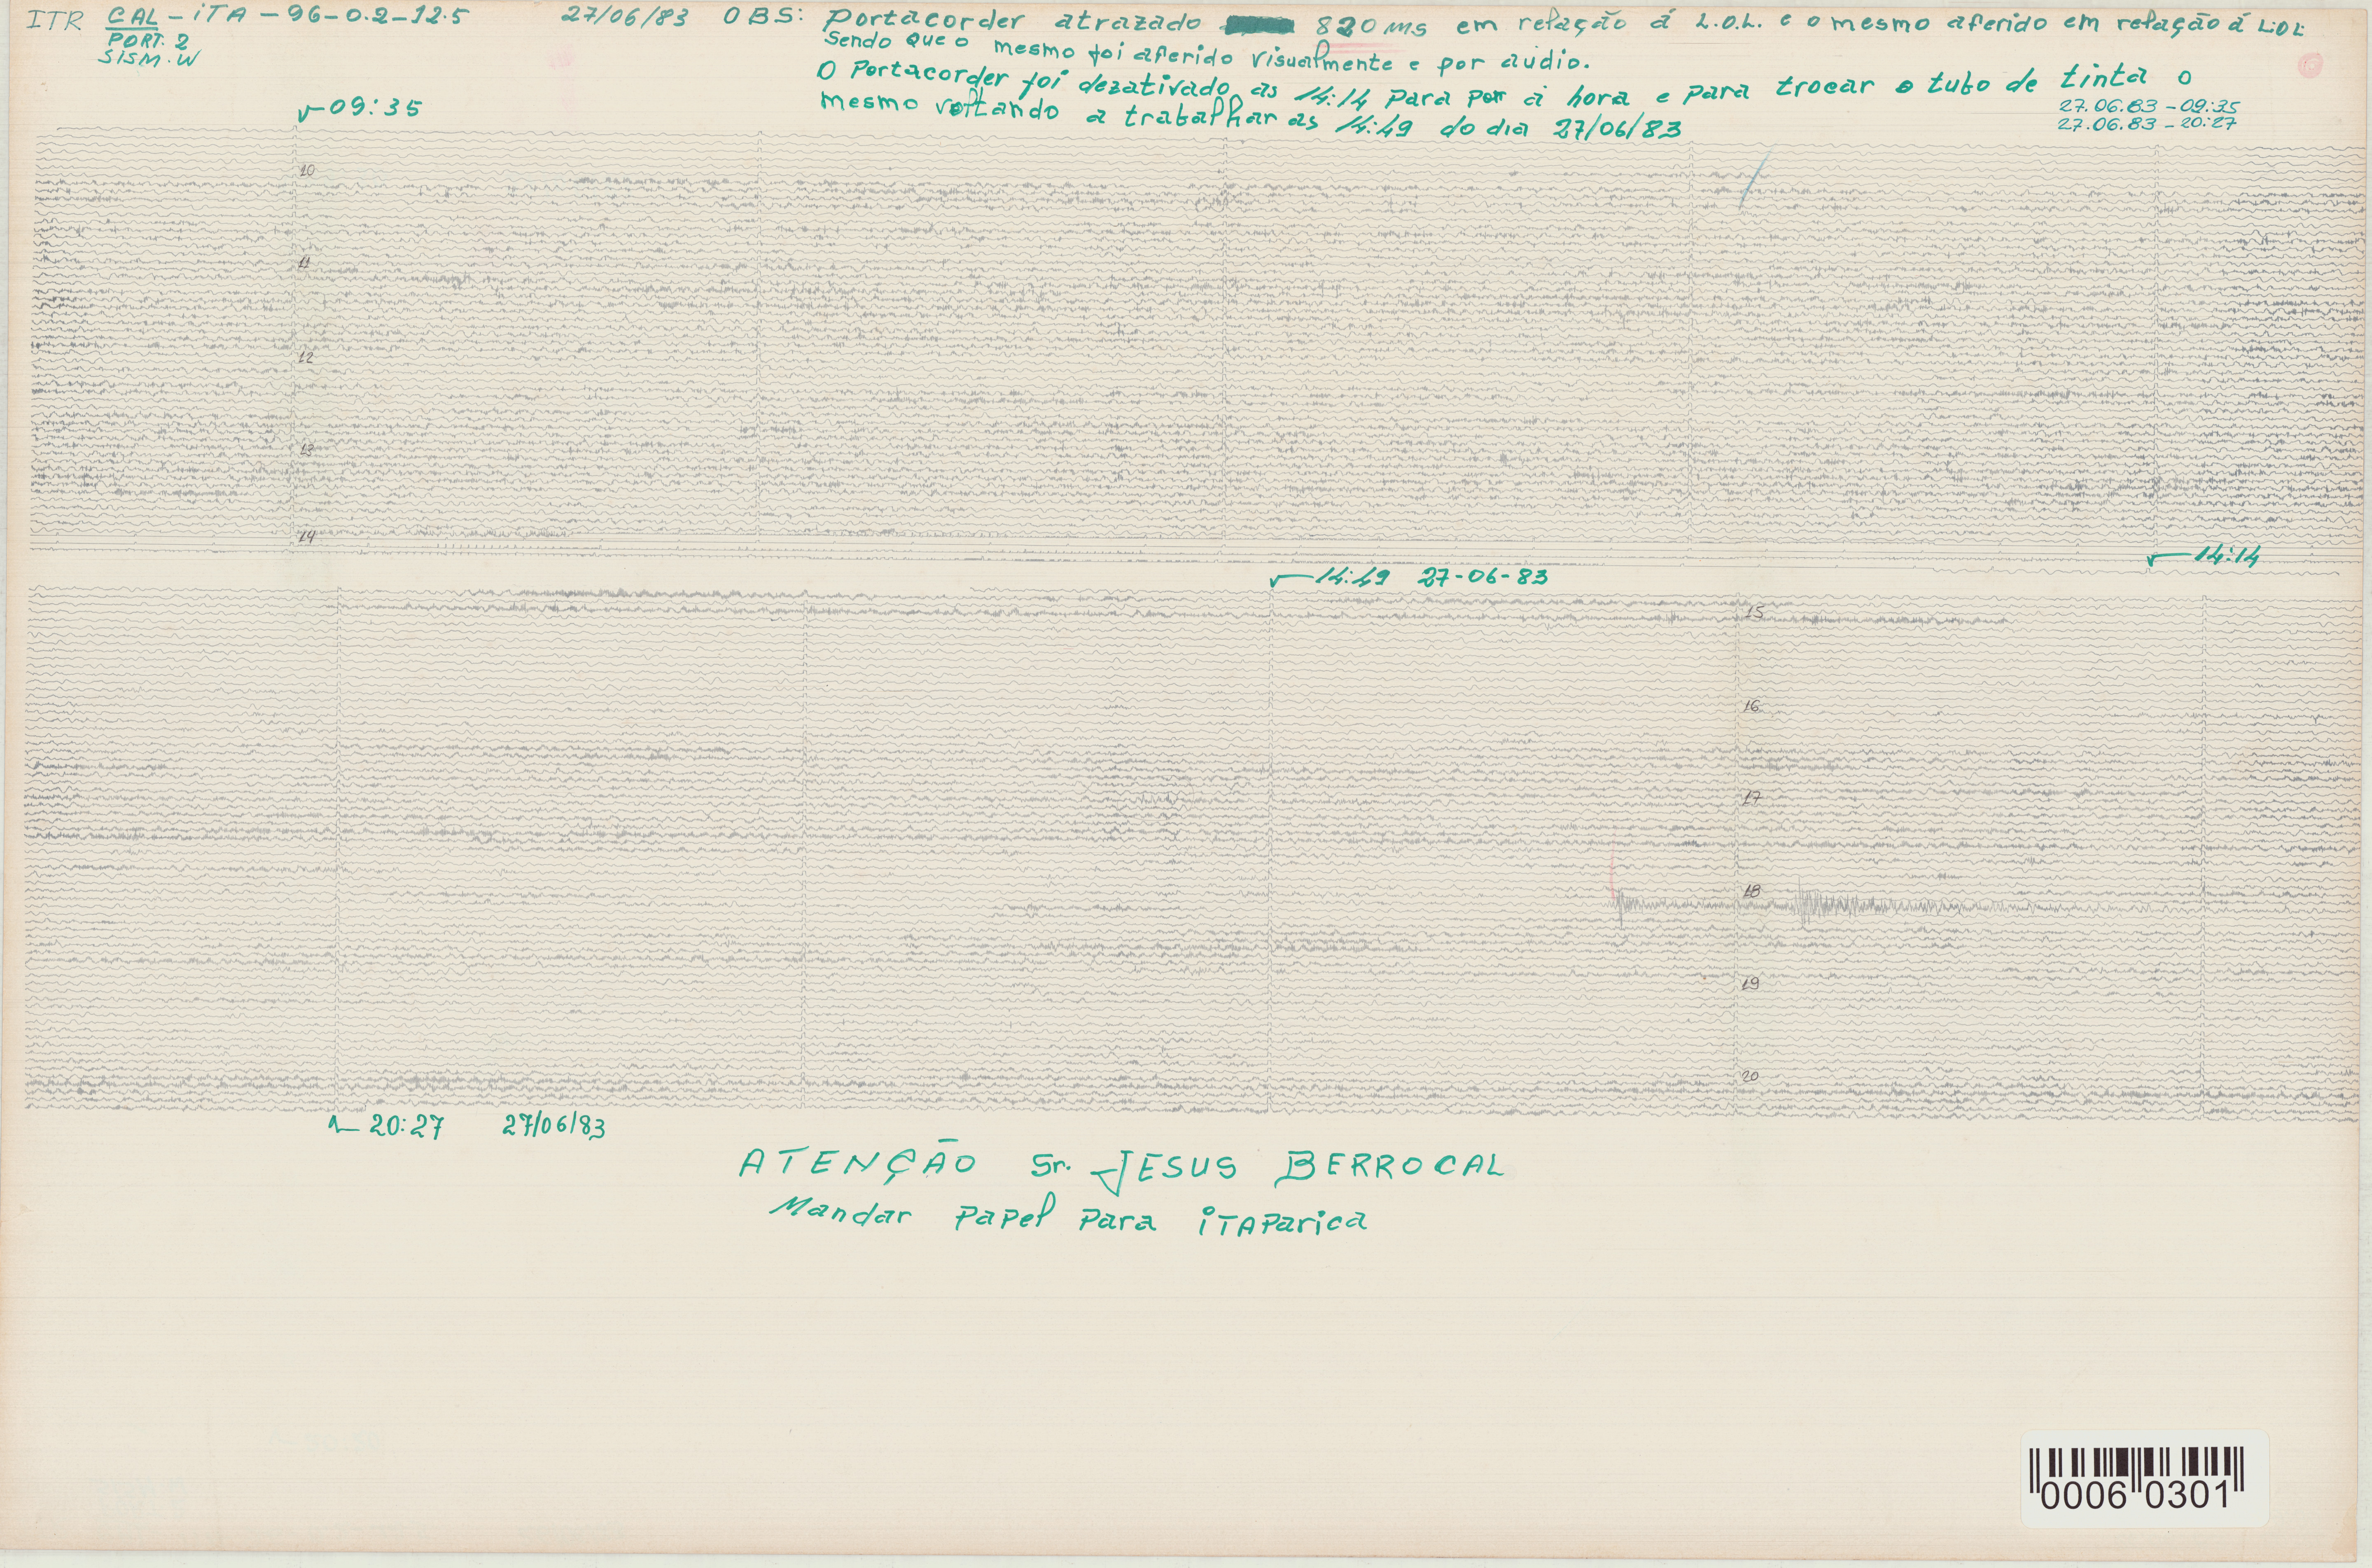 ITR CAL-iTA-96-0.2-12.5 27/06/83 OBS: Portacorder atrazado 820 ms em relação á L.O.L. e o mesmo aferido em relação á L.O.L.
PORT. 2
SISM. W
Sendo que o mesmo foi aferido visualmente e por audio.
O Portacorder foi dezativado as 14:14 para por a hora e para trocar o tubo de tinta o
mesmo voltando a trabalhar as 14:49 do dia 27/06/83
27.06.83 - 09:35
27.06.83 - 20:27
09:35
10
11
12
13
14
14:14
14:49 27-06-83
15
16
17
18
19
20
20:27 27/06/83
ATENÇÃO Sr. JESUS BERROCAL
Mandar Papel Para iTAParica
0006 0301